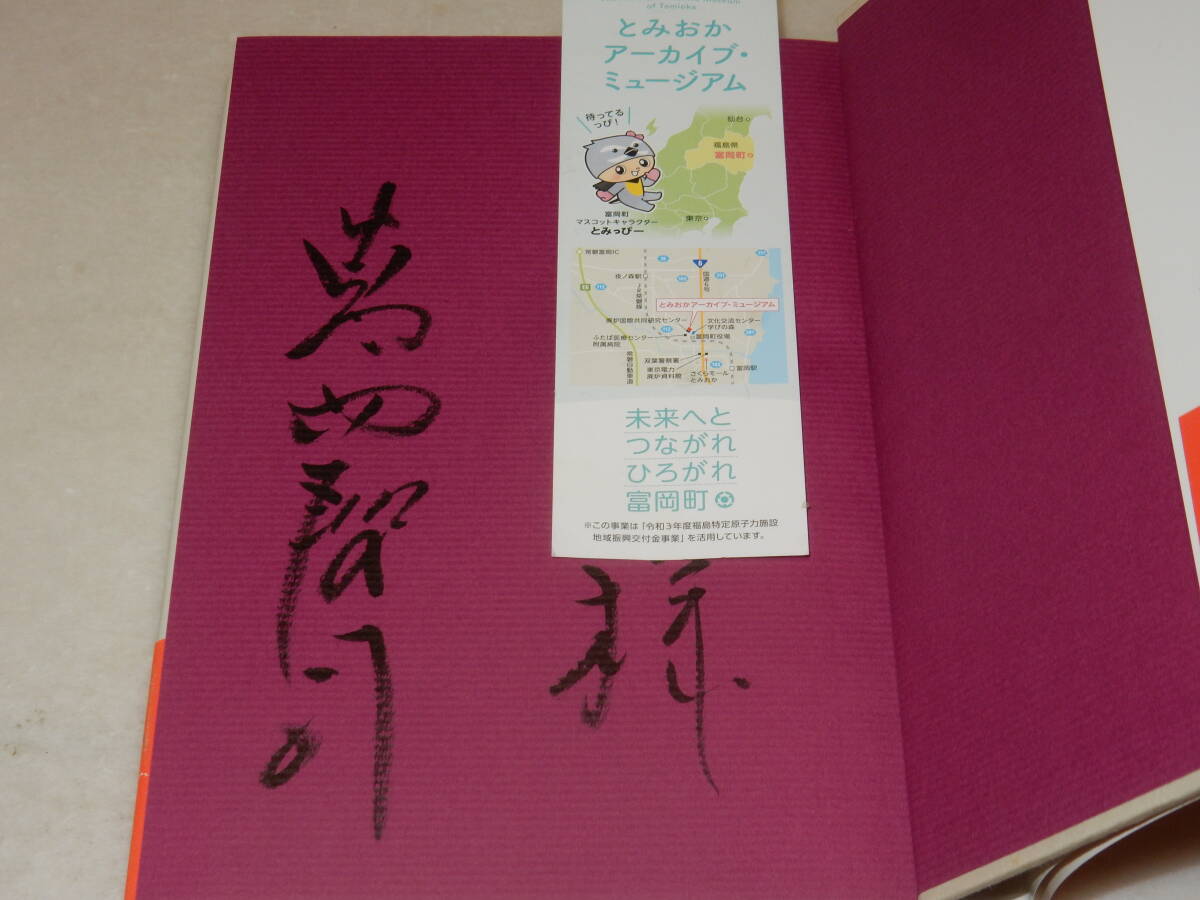 of Tomioka
とみおか
アーカイブ・
ミュージアム
待ってる
っぴ!
仙台
福島県
富岡町
東京
富岡町
マスコットキャラクター
とみっぴー
常磐富岡IC
夜ノ森駅
JR常磐線
6
国道6号
とみおかアーカイブ・ミュージアム
廃炉国際共同研究センター
文化交流センター
学びの森
ふたば医療センター
附属病院
富岡町役場
常磐自動車道
双葉警察署
東京電力
廃炉資料館
さくらモール
とみおか
富岡駅
未来へと
つながれ
ひろがれ
富岡町
※この事業は「令和3年度福島特定原子力施設
地域振興交付金事業」を活用しています。
様